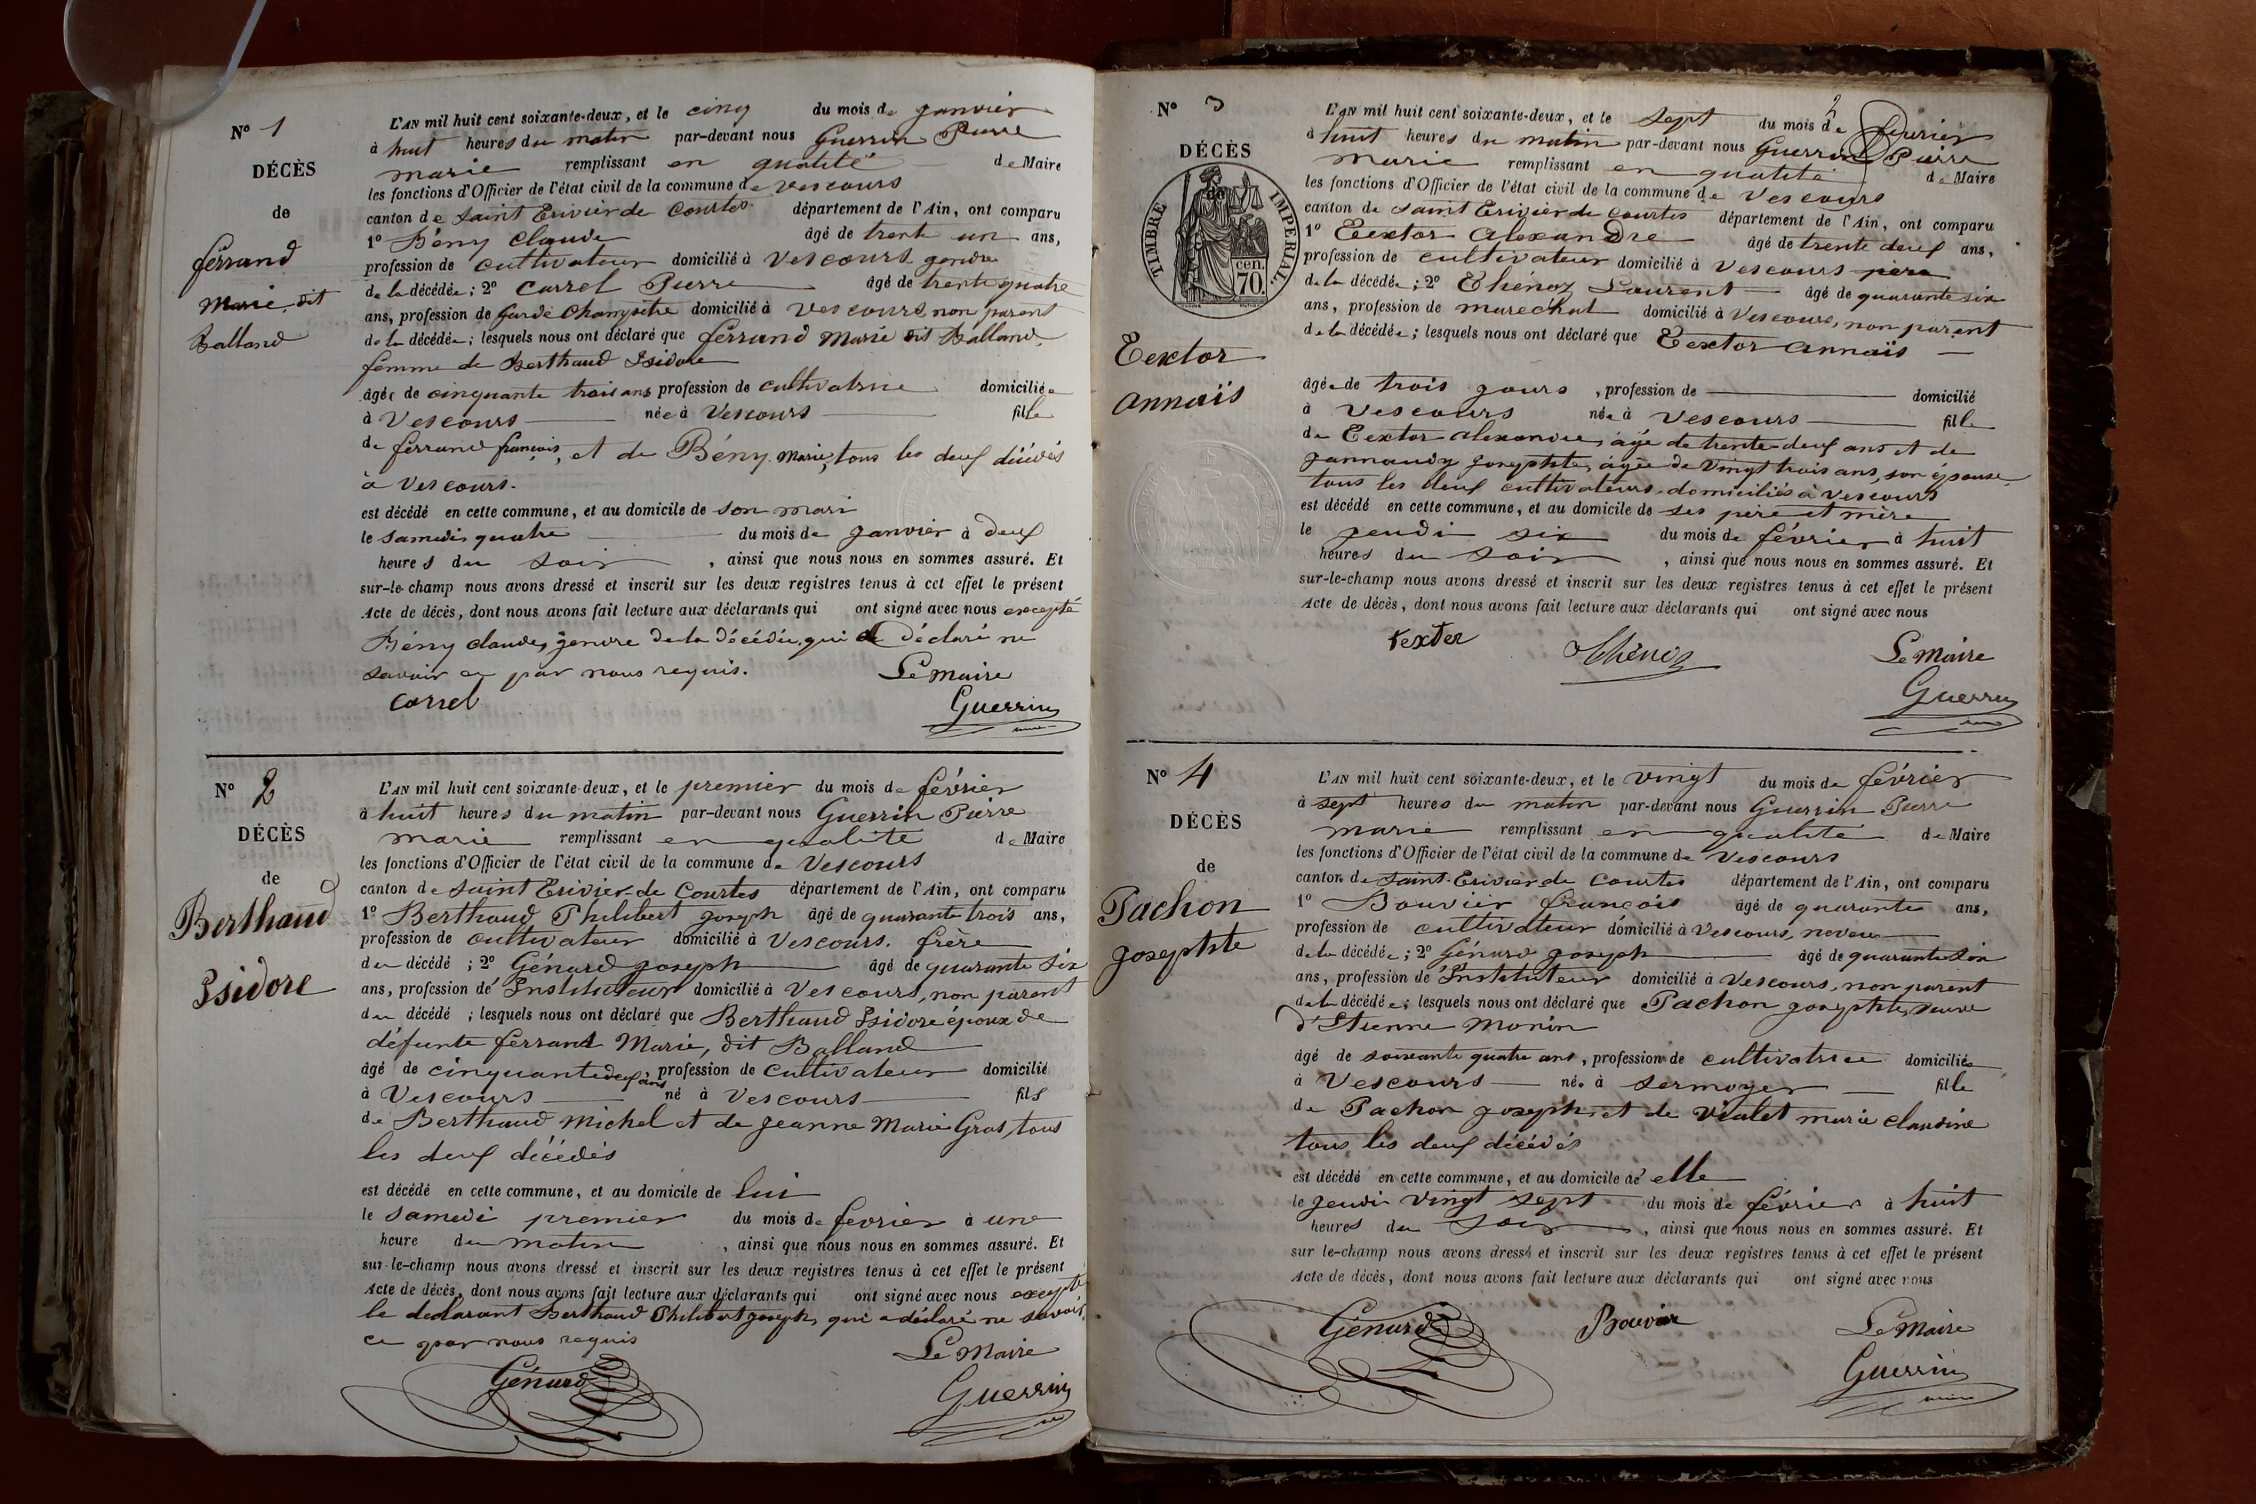 N° 1
DÉCÈS
de
ferrand
Marie, dit
Balland
L'AN mil huit cent soixante-deux, et le cinq du mois de janvier
à huit heures du matin par-devant nous Guerrin Pierre
marie remplissant en qualité de Maire
les fonctions d'Officier de l'état civil de la commune de Vescours
canton de Saint Trivier de Courtes département de l'Ain, ont comparu
1° Bény Claude âgé de trente un ans,
profession de cultivateur domicilié à Vescours gendre
de la décédée ; 2° Carrel Pierre âgé de trente quatre
ans, profession de garde champêtre domicilié à Vescours, non parent
de la décédée ; lesquels nous ont déclaré que ferrand Marie dit Balland
femme de Berthaud Isidore
âgée de cinquante trois ans profession de cultivatrice domiciliée
à Vescours née à Vescours fille
de ferrand françois, et de Bény Marie, tous les deux décédés
à Vescours.
est décédé en cette commune, et au domicile de son mari
le samedi quatre du mois de janvier à deux
heures du soir , ainsi que nous nous en sommes assuré. Et
sur-le-champ nous avons dressé et inscrit sur les deux registres tenus à cet effet le présent
Acte de décès, dont nous avons fait lecture aux déclarants qui ont signé avec nous excepté
Bény claude, gendre de la décédée, qui a déclaré ne
savoir ce par nous requis.
Le Maire
Carrel
Guerrin
N° 2
DÉCÈS
de
Berthaud
Isidore
L'AN mil huit cent soixante-deux, et le premier du mois de février
à huit heures du matin par-devant nous Guerrin Pierre
marie remplissant en qualité de Maire
les fonctions d'Officier de l'état civil de la commune de Vescours
canton de Saint Trivier de Courtes département de l'Ain, ont comparu
1° Berthaud Philibert joseph âgé de quarante trois ans,
profession de cultivateur domicilié à Vescours. frère
du décédé ; 2° Génard joseph âgé de quarante six
ans, profession de Instituteur domicilié à Vescours, non parent
du décédé ; lesquels nous ont déclaré que Berthaud Isidore époux de
défunte ferrand Marie, dit Balland
âgé de cinquante deux ans profession de cultivateur domicilié
à Vescours né à Vescours fils
de Berthaud Michel et de Jeanne Marie Gras, tous
les deux décédés
est décédé en cette commune, et au domicile de lui
le samedi premier du mois de fevrier à une
heure du matin , ainsi que nous nous en sommes assuré. Et
sur-le-champ nous avons dressé et inscrit sur les deux registres tenus à cet effet le présent
Acte de décès, dont nous avons fait lecture aux déclarants qui ont signé avec nous excepté
le declarant Berthaud Philibert joseph, qui a déclaré ne savoir
ce par nous requis
Le Maire
Génard
Guerrin
N° 3
DÉCÈS
de
TIMBRE IMPERIAL
70 cen.
Textor
annaïs
2
L'AN mil huit cent soixante-deux, et le sept du mois de fevrier
à huit heures du matin par-devant nous Guerrin Pierre
marie remplissant en qualité de Maire
les fonctions d'Officier de l'état civil de la commune de Vescours
canton de Saint Trivier de Courtes département de l'Ain, ont comparu
1° Textor Alexandre âgé de trente deux ans,
profession de cultivateur domicilié à Vescours père
de la décédée ; 2° Thénoz Laurent âgé de quarante six
ans, profession de maréchal domicilié à Vescours, non parent
de la décédée ; lesquels nous ont déclaré que Textor annaïs
âgée de trois jours , profession de domicilié
à Vescours née à Vescours fille
de Textor alexandre, âgé de trente-deux ans et de
Jannaudy josephte, âgée de vingt trois ans, son épouse
tous les deux cultivateurs domiciliés à Vescours
est décédé en cette commune, et au domicile de ses père et mère
le jeudi six du mois de février à huit
heures du soir , ainsi que nous nous en sommes assuré. Et
sur-le-champ nous avons dressé et inscrit sur les deux registres tenus à cet effet le présent
Acte de décès, dont nous avons fait lecture aux déclarants qui ont signé avec nous
texter Thénoz Le Maire
Guerrin
N° 4
DÉCÈS
de
Pachon
josephte
L'AN mil huit cent soixante-deux, et le vingt du mois de février
à sept heures du matin par-devant nous Guerrin Pierre
marie remplissant en qualité de Maire
les fonctions d'Officier de l'état civil de la commune de Vescours
canton de Saint-Trivier de Courtes département de l'Ain, ont comparu
1° Bouvier françois âgé de quarante ans,
profession de cultivateur domicilié à Vescours, neveu
de la décédée ; 2° Génard joseph âgé de quarante six
ans, profession de Instituteur domicilié à Vescours, non parent
de la décédée ; lesquels nous ont déclaré que Pachon josephte, veuve
d'Etienne Monin
âgé de soixante quatre ans, profession de cultivatrice domiciliée
à Vescours née à Sermoyer fille
de Pachon joseph, et de Vialet marie claudine
tous les deux décédés
est décédé en cette commune, et au domicile de elle
le jeudi vingt sept du mois de février à huit
heures du soir , ainsi que nous nous en sommes assuré. Et
sur le-champ nous avons dressé et inscrit sur les deux registres tenus à cet effet le présent
Acte de décès, dont nous avons fait lecture aux déclarants qui ont signé avec nous
Génard Bouvier Le Maire
Guerrin